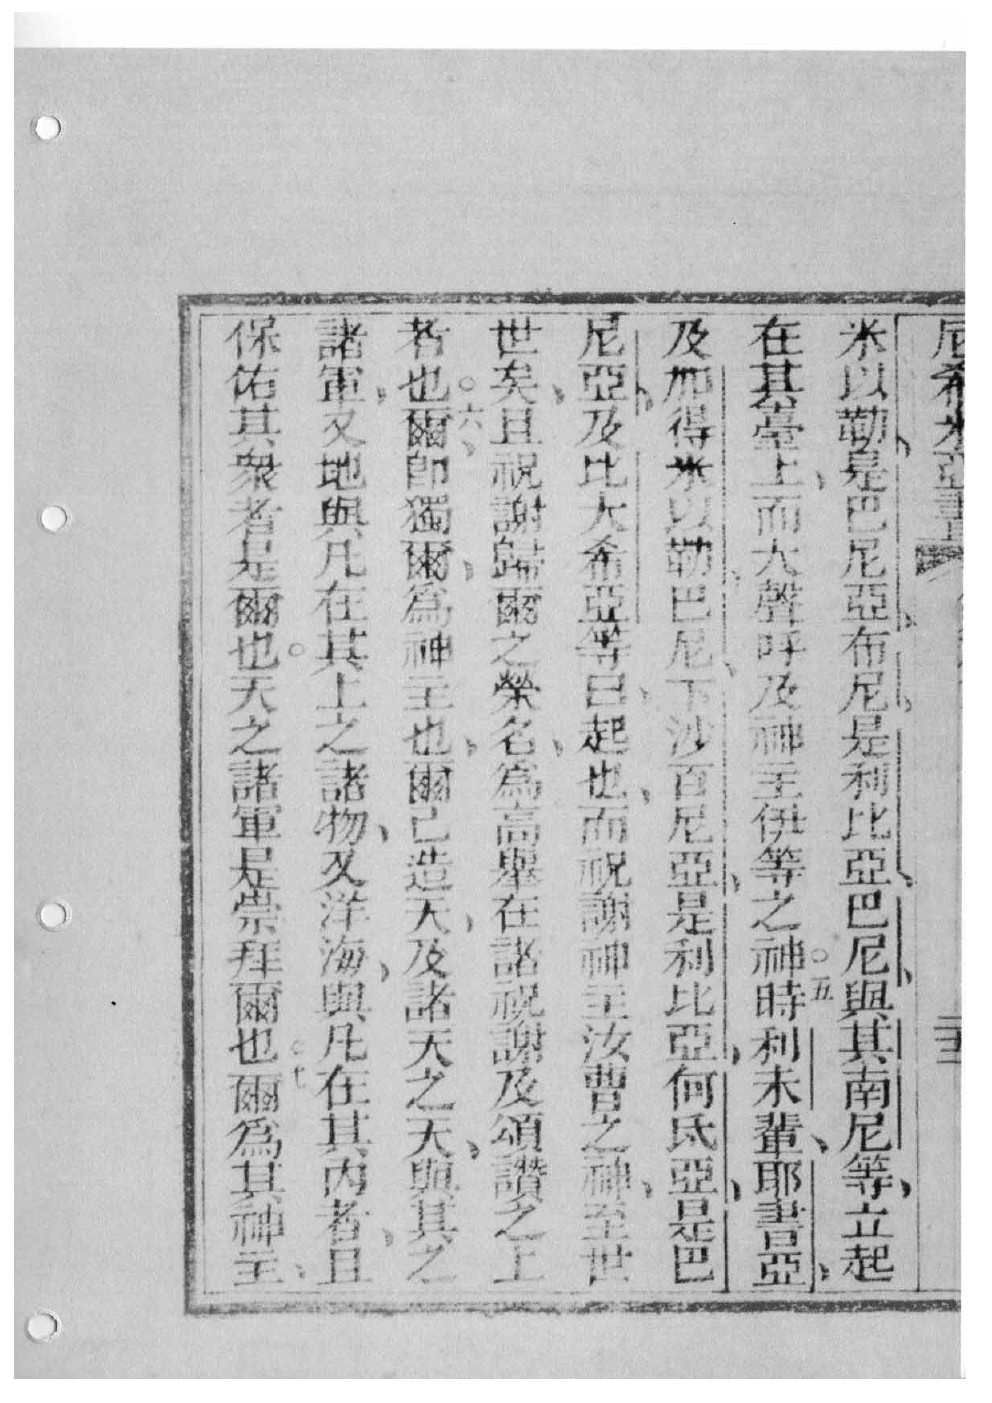 尼希米亞書
二十三
米以勒、是巴尼亞、布尼、是利比亞、巴尼、與其南尼等、立起
在其臺上、而大聲呼及神主伊等之神。五時利未輩、耶書亞、
及加得米以勒、巴尼、下沙百尼亞、是利比亞、何氐亞、是巴
尼亞、及比大希亞等曰、起也、而祝謝神主汝曹之神、至世
世矣、且祝謝歸爾之榮名、為高舉在諸祝謝及頌讚之上
者也。六、爾即獨爾、為神主也、爾已造天、及諸天之天、與其之
諸軍、又地與凡在其上之諸物、又洋海、與凡在其內者、且
保佑其衆者是爾也。天之諸軍是崇拜爾也。七爾為其神主、